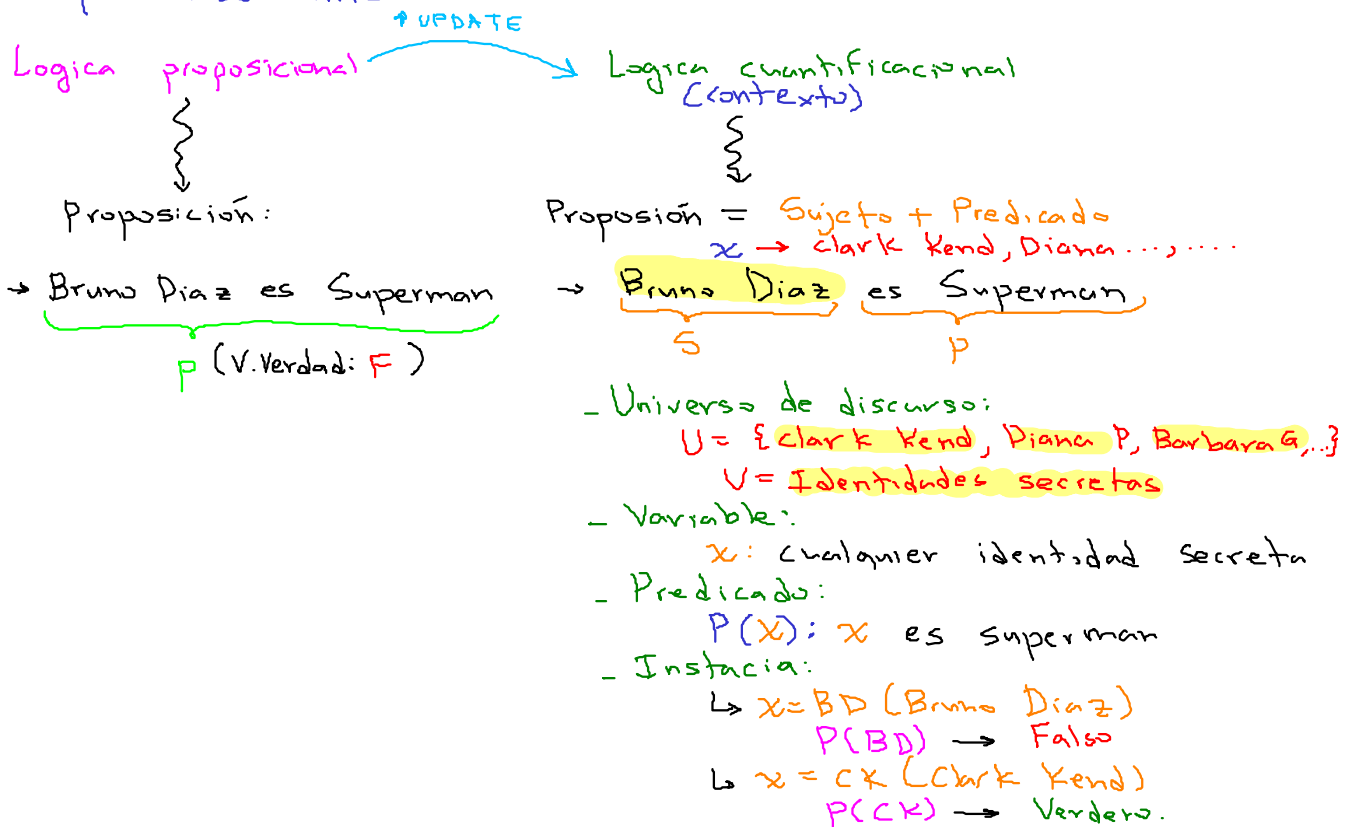 ↑ UPDATE
Logica proposicional
Proposición:
→ Bruno Diaz es Superman
p (V.Verdad: F)
Logica cuantificacional
(contexto)
Proposión = Sujeto + Predicado
x → clark Kend, Diana ..., ....
→ Bruno Diaz es Superman
S P
- Universo de discurso:
U = {clark Kend, Diana P, Barbara G,..}
U = Identidades secretas
- Variable:
x: cualquier identidad secreta
- Predicado:
P(x): x es superman
- Instacia:
↳ x = BD (Bruno Diaz)
P(BD) → Falso
↳ x = CK (Clark Kend)
P(CK) → Verdero.